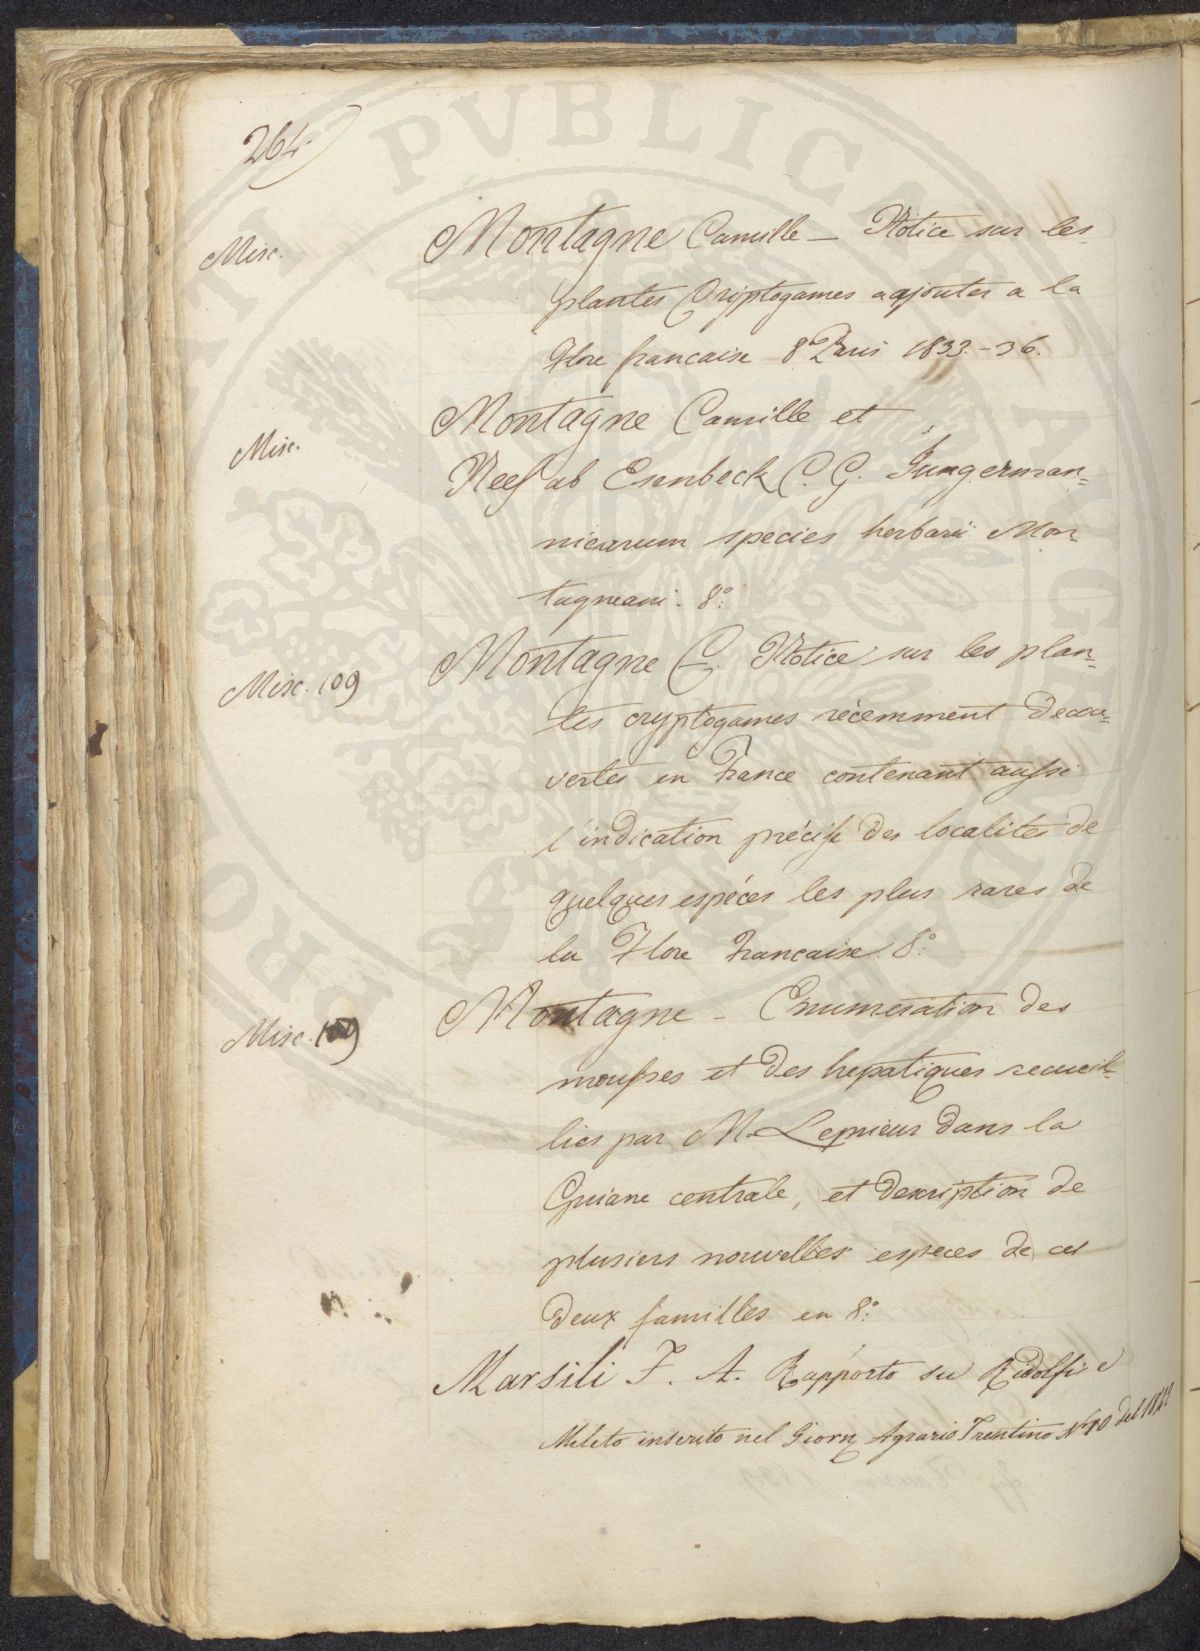 264
Misc. Montagne Camille — Notice sur les
plantes Criptogames aajouter a la
Flore francaise 8º Paris 1833.-36.
Misc. Montagne Camille et
Neeſ ab Esenbeck C. G. Jungerman=
nicarum species herbarii Mon=
tagneani. 8º.
Misc. 109 Montagne C. Notice sur les plan=
tes cryptogames récemment decou=
vertes en France contenant auſsi
l'indication préciſe des localites de
quelques espéces les plus rares de
la Flore Francaise. 8º.
Misc. 109 Montagne — Enumeration des
mouſses et des hepatiques recueil-
lies par M. Leprieur dans la
Guiane centrale, et description de
plusiers nouvelles especes de ces
deux familles en 8º.
Marsili F. A. Rapporto su Ridolfi e
Meleto inserito nel Giorn Agrario Trentino Nº 10 del
PVBLICAE